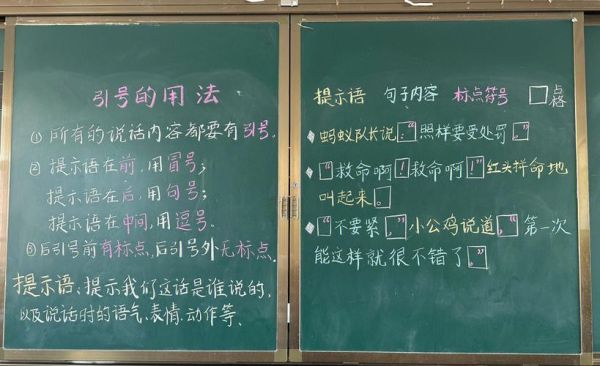 引号的用法
①所有的说话内容都要有引号。
②提示语在前,用冒号;
提示语在后,用句号;
提示语在中间,用逗号。
③后引号前有标点,后引号外无标点。
提示语:提示我们这话是谁说的,
以及说话时的语气、表情、动作等。
提示语 句子内容 标点符号 □占格
蚂蚁队长说:“照样要受处罚。”
“救命啊!救命啊!”红头拼命地
叫起来。
“不要紧,”小公鸡说道,“第一次
能这样就很不错了。”